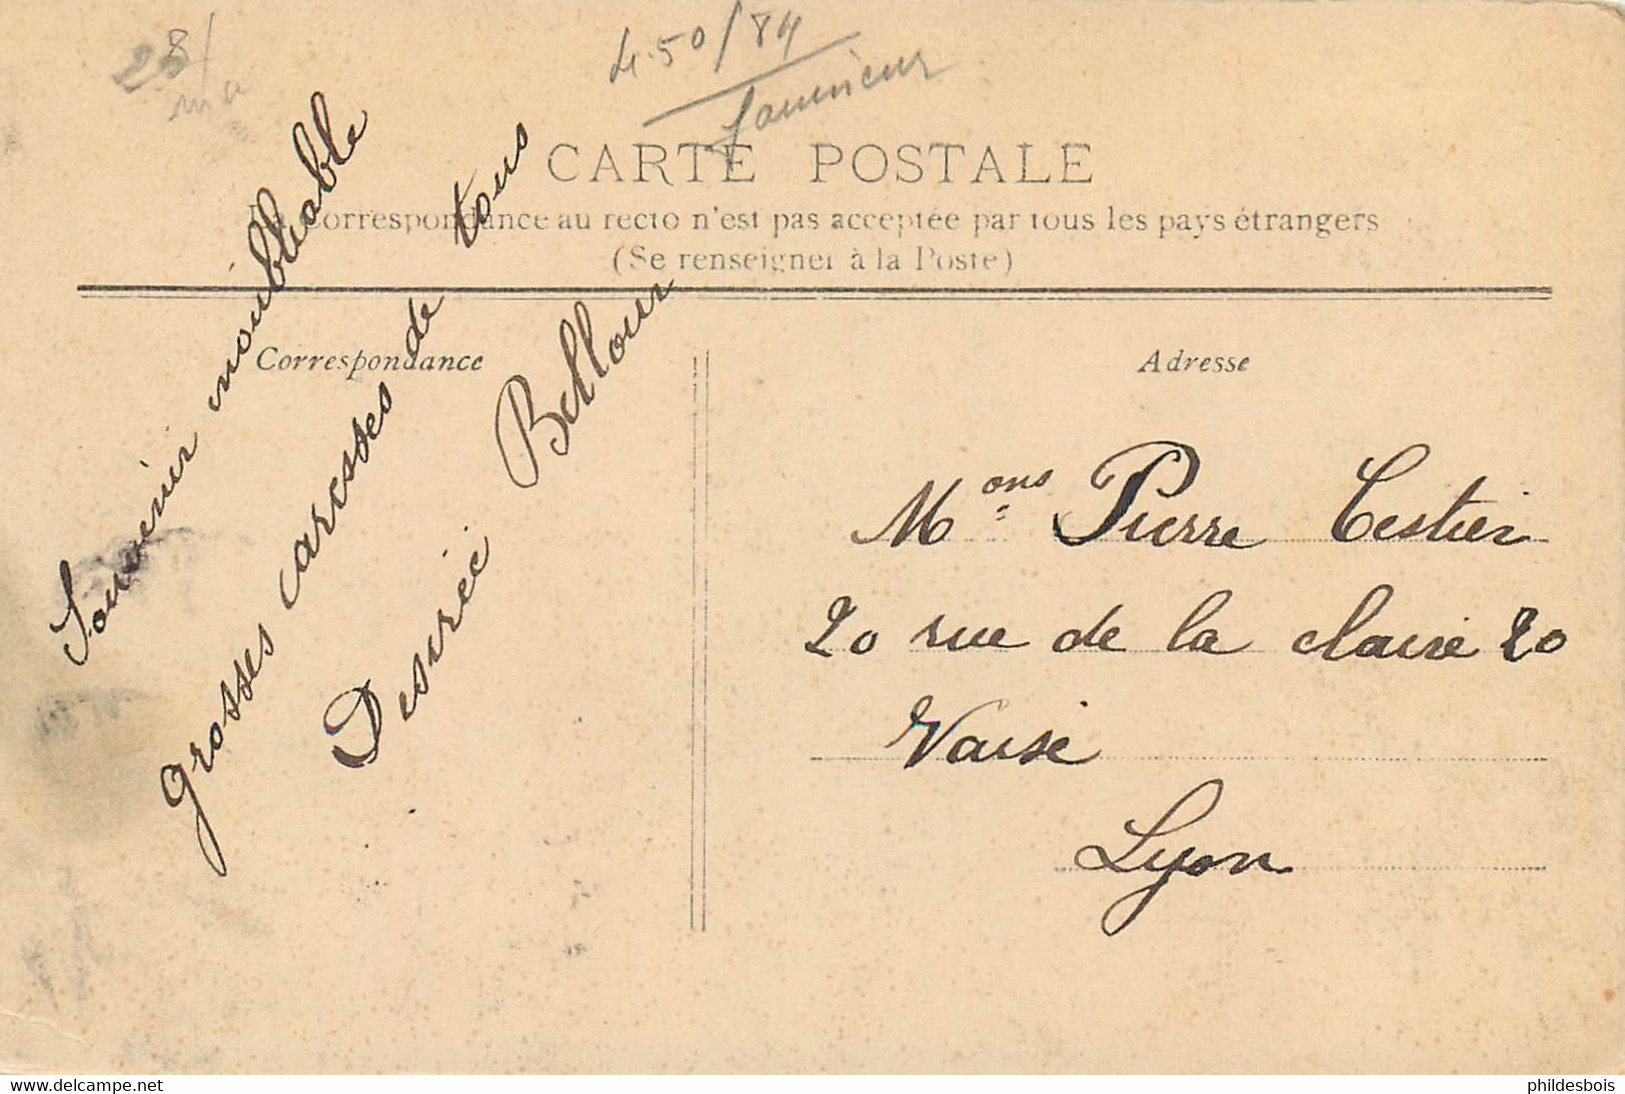 28/
4.50/84
CARTE POSTALE
La Correspondance au recto n'est pas acceptée par tous les pays étrangers
(Se renseigner à la Poste)
Correspondance
Adresse
Souvenir inoubliable
grosses caresses de tous
Desirée Bellour
Mons Pierre Testier
20 rue de la claire 20
Vaise
Lyon
www.delcampe.net
phildesbois